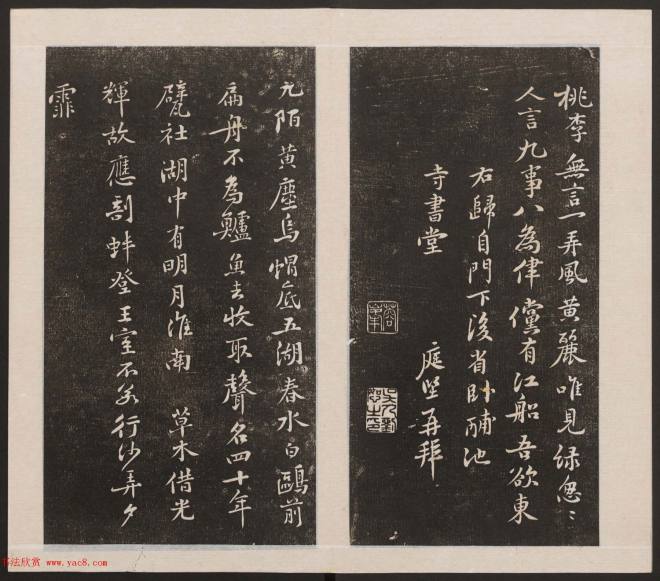 桃李無言一再風黃麗唯見綠悤〻
人言九事八為律儻有江船吾欲東
右歸自門下後省卧酺池
寺書堂
庭堅再拜
九陌黃塵烏帽底五湖春水白鷗前
扁舟不為鱸魚去收取聲名四十年
甓社湖中有明月淮南草木借光
輝故應剖蚌登王室不若行沙弄夕
霏
书法欣赏 www.yac8.com